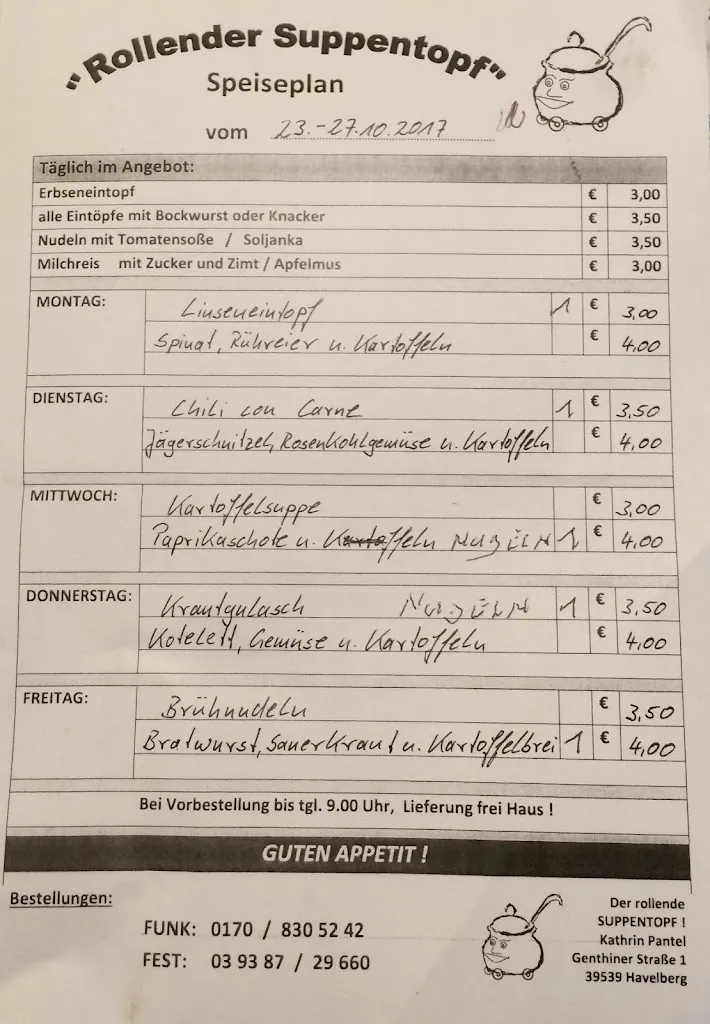 "Rollender Suppentopf"
Speiseplan
vom 23.-27.10.2017
Täglich im Angebot:
Erbseneintopf € 3,00
alle Eintöpfe mit Bockwurst oder Knacker € 3,50
Nudeln mit Tomatensoße / Soljanka € 3,50
Milchreis mit Zucker und Zimt / Apfelmus € 3,00
MONTAG: Linseneintopf 1 € 3,00
Spinat, Rühreier u. Kartoffeln € 4,00
DIENSTAG: Chili con Carne 1 € 3,50
Jägerschnitzel, Rosenkohlgemüse u. Kartoffeln € 4,00
MITTWOCH: Kartoffelsuppe € 3,00
Paprikaschote u. Kartoffeln NUDELN 1 € 4,00
DONNERSTAG: Krautgulasch NUDELN 1 € 3,50
Kotelett, Gemüse u. Kartoffeln € 4,00
FREITAG: Brühnudeln € 3,50
Bratwurst, Sauerkraut u. Kartoffelbrei 1 € 4,00
Bei Vorbestellung bis tgl. 9.00 Uhr, Lieferung frei Haus !
GUTEN APPETIT !
Bestellungen:
FUNK: 0170 / 830 52 42
FEST: 03 93 87 / 29 660
Der rollende
SUPPENTOPF !
Kathrin Pantel
Genthiner Straße 1
39539 Havelberg